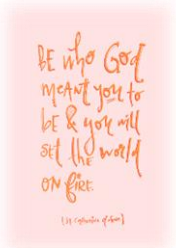 BE who God
MEANT you to
bE & you will
SET the world
ON fiRE
{St. Catherine of Siena}